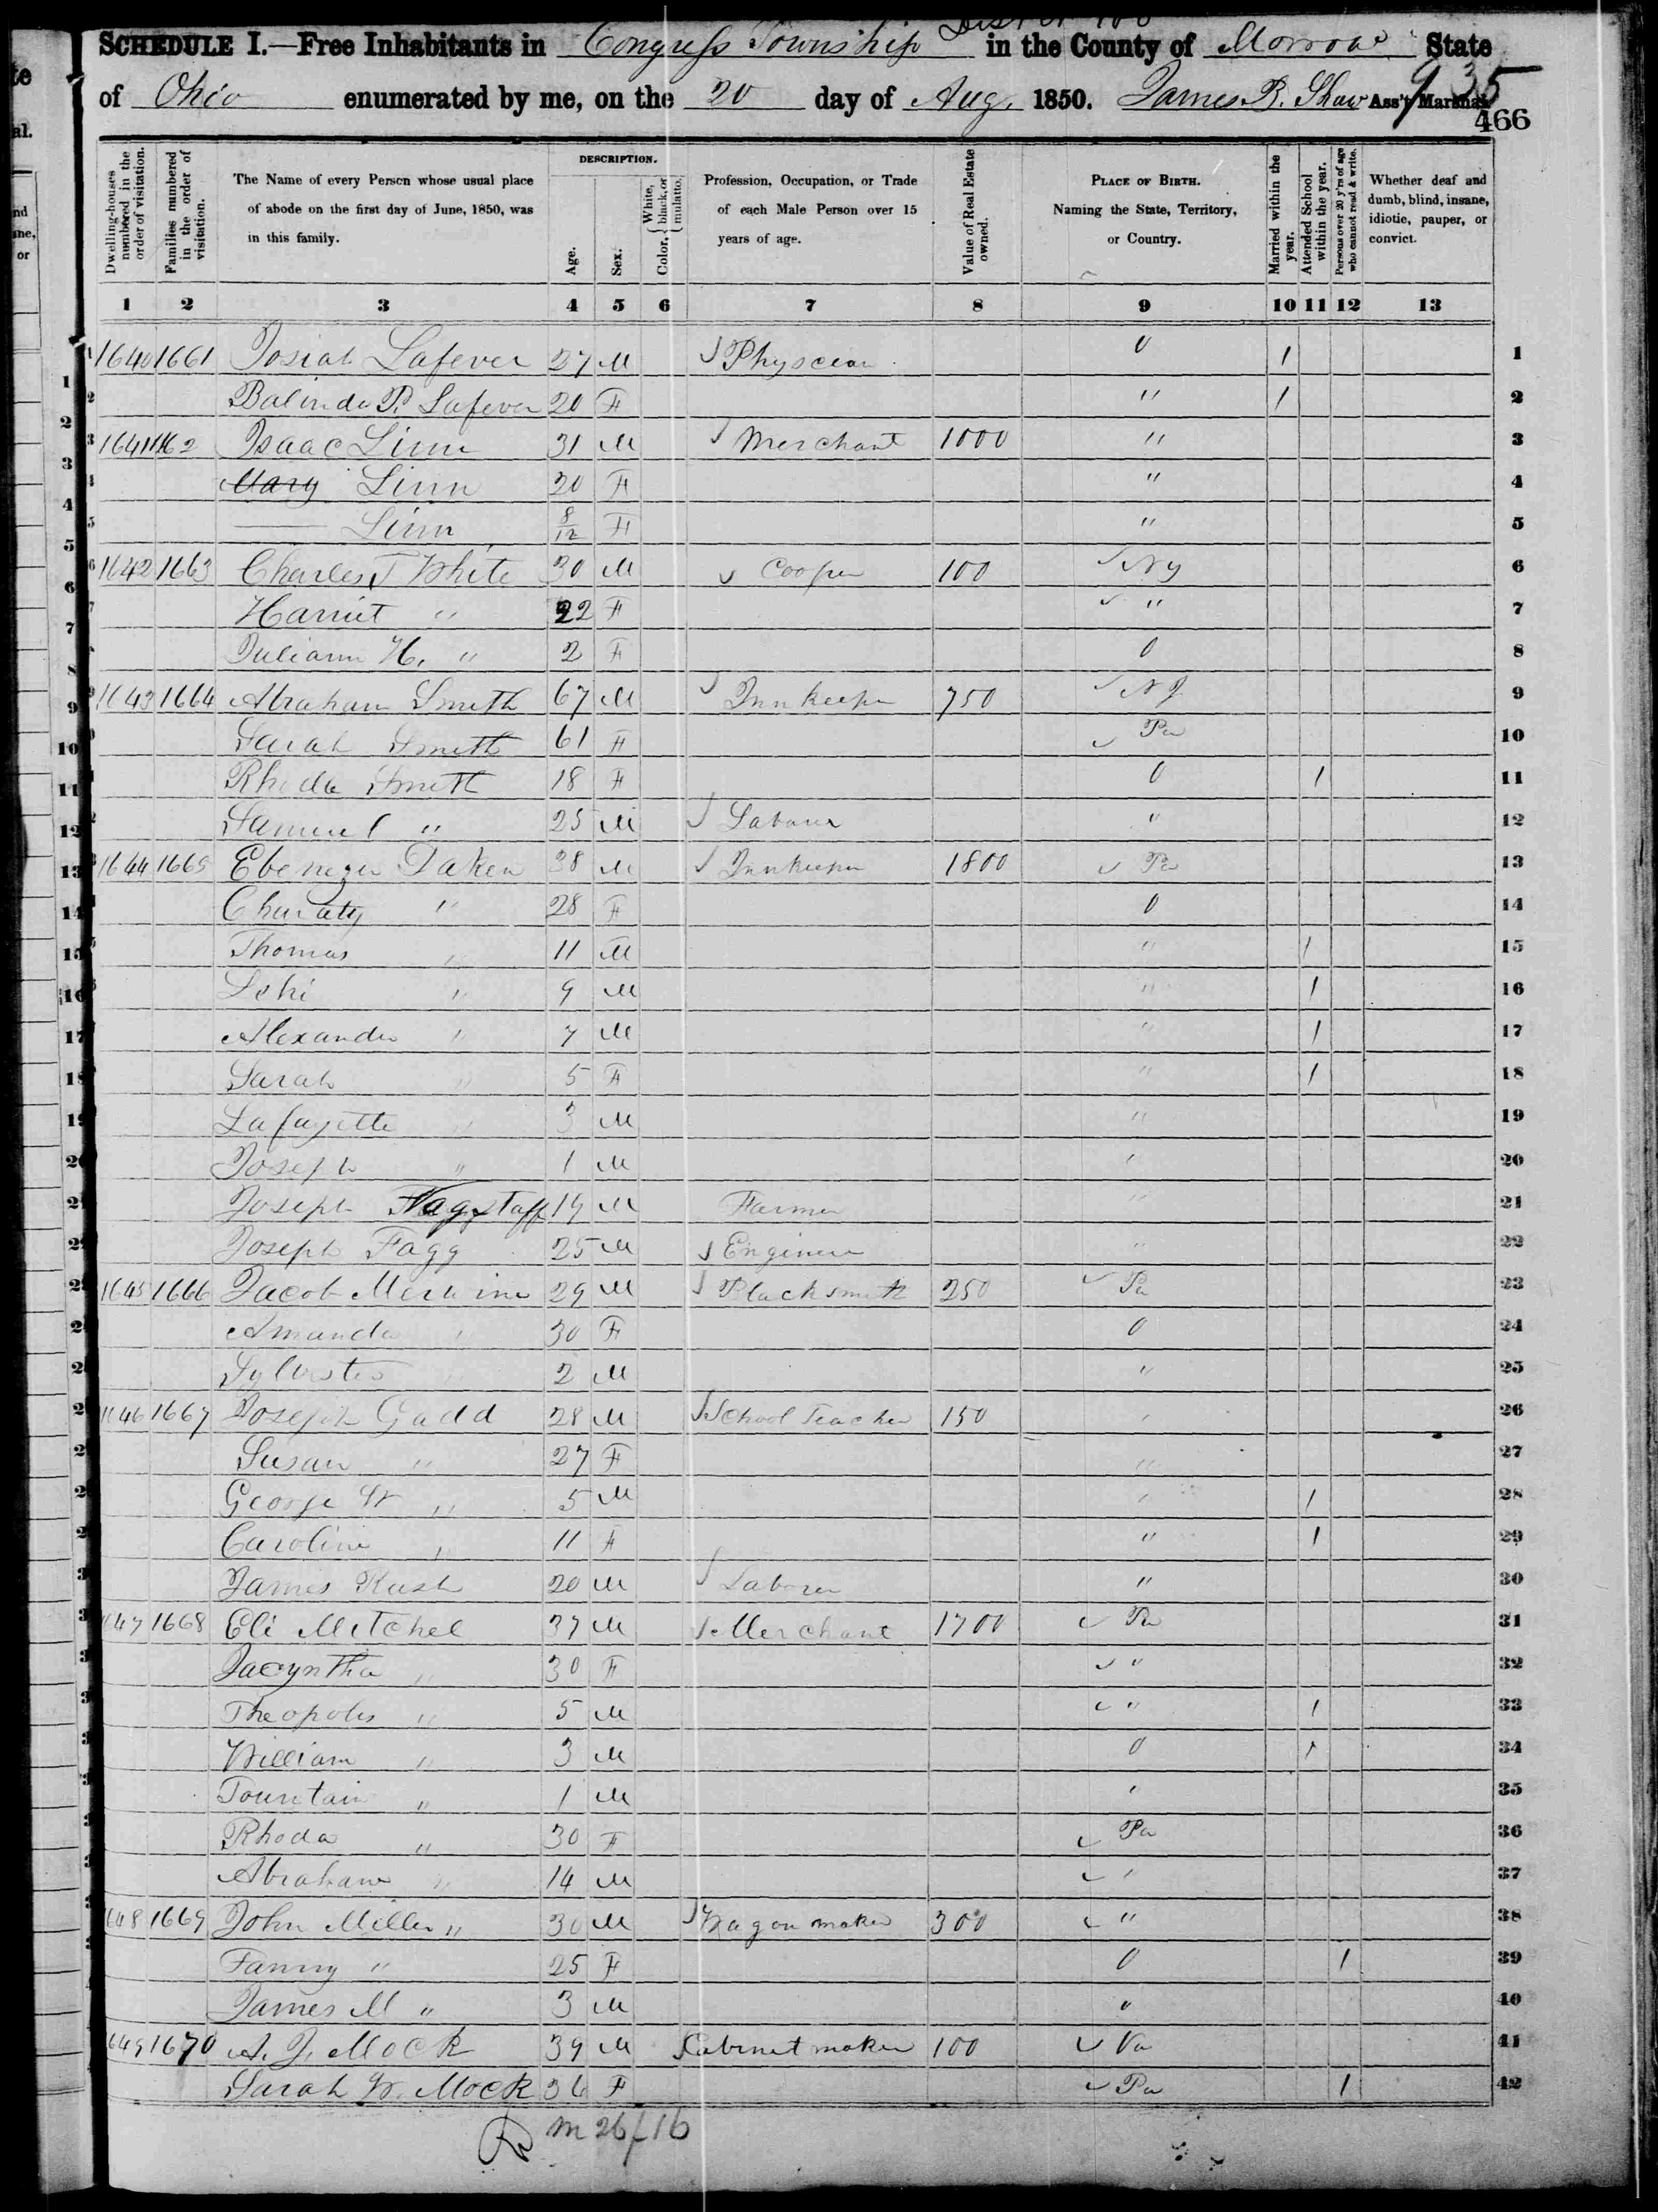 SCHEDULE I.—Free Inhabitants in Congress Township in the County of Morrow State
of Ohio enumerated by me, on the 20 day of Aug. 1850. James B. Shaw Ass't Marshal.
935
466
DESCRIPTION.
Dwelling-houses numbered in the order of visitation.
Families numbered in the order of visitation.
The Name of every Person whose usual place of abode on the first day of June, 1850, was in this family.
Age.
Sex.
Color, White, black, or mulatto.
Profession, Occupation, or Trade of each Male Person over 15 years of age.
Value of Real Estate owned.
PLACE OF BIRTH. Naming the State, Territory, or Country.
Married within the year.
Attended School within the year.
Persons over 20 y'rs of age who cannot read & write.
Whether deaf and dumb, blind, insane, idiotic, pauper, or convict.
1 2 3 4 5 6 7 8 9 10 11 12 13
1 1640 1661 Josiah Lafever 27 M Physcian O 1 1
2 Balinda P. Lafever 20 F " 1 2
3 1641 1662 Isaac Linn 31 M Merchant 1000 " 3
4 Mary Linn 20 F " 4
5 —— Linn 8/12 F " 5
6 1642 1663 Charles T White 30 M Cooper 100 NY 6
7 Harriet " 22 F " 7
8 Juliann H. " 2 F O 8
9 1643 1664 Abraham Smith 67 M Innkeeper 750 NJ 9
10 Sarah Smith 61 F Pa 10
11 Rhoda Smith 18 F O 1 11
12 Samuel " 25 M Laborer " 12
13 1644 1665 Ebenezer Daken 38 M Innkeeper 1800 Pa 13
14 Charaty " 28 F O 14
15 Thomas " 11 M " 1 15
16 Lehi " 9 M " 1 16
17 Alexander " 7 M " 1 17
18 Sarah " 5 F " 1 18
19 Lafayette " 3 M " 19
20 Joseph " 1 M " 20
21 Joseph Flagstaff 19 M Farmer " 21
22 Joseph Fagg 25 M Engineer " 22
23 1645 1666 Jacob Merwine 29 M Blacksmith 250 Pa 23
24 Amanda " 30 F O 24
25 Sylvester " 2 M " 25
26 1646 1667 Joseph Gadd 28 M School Teacher 150 " 26
27 Susan " 27 F " 27
28 George W " 5 M " 1 28
29 Caroline " 11 F " 1 29
30 James Rush 20 M Laborer " 30
31 1647 1668 Eli Mitchel 37 M Merchant 1700 Pa 31
32 Jacyntha " 30 F " 32
33 Theopolis " 5 M " 1 33
34 William " 3 M O 1 34
35 Fountain " 1 M " 35
36 Rhoda " 30 F Pa 36
37 Abraham " 14 M " 37
38 1648 1669 John Miller " 30 M Wagon maker 300 " 38
39 Fanny " 25 F O 1 39
40 James M " 3 M " 40
41 1649 1670 A. J. Mock 39 M Cabinet maker 100 Va 41
42 Sarah W. Mock 36 F Pa 1 42
m 26 f 16